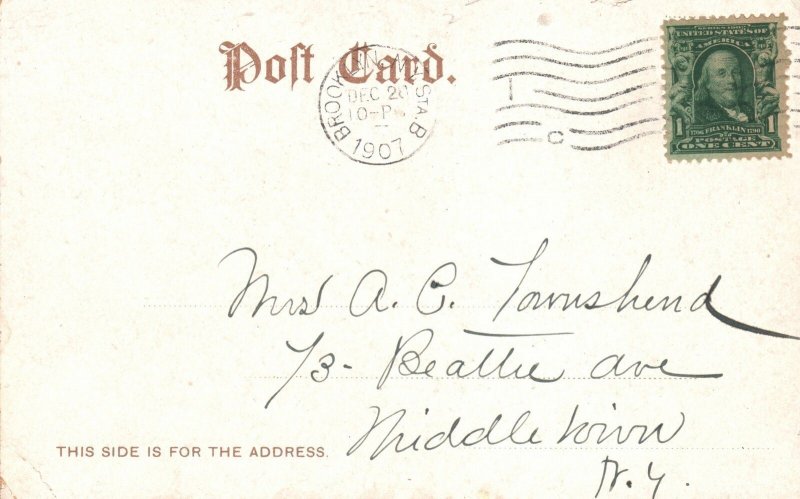 Post Card.
BROOKLYN, N.Y. STA. B
DEC 20
10-P
1907
C
SERIES 1902
UNITED STATES OF
AMERICA
1 1706 FRANKLIN 1790 1
POSTAGE
ONE CENT
Mrs A. C. Townshend
73- Beattie ave
Middletown
N. Y.
THIS SIDE IS FOR THE ADDRESS.